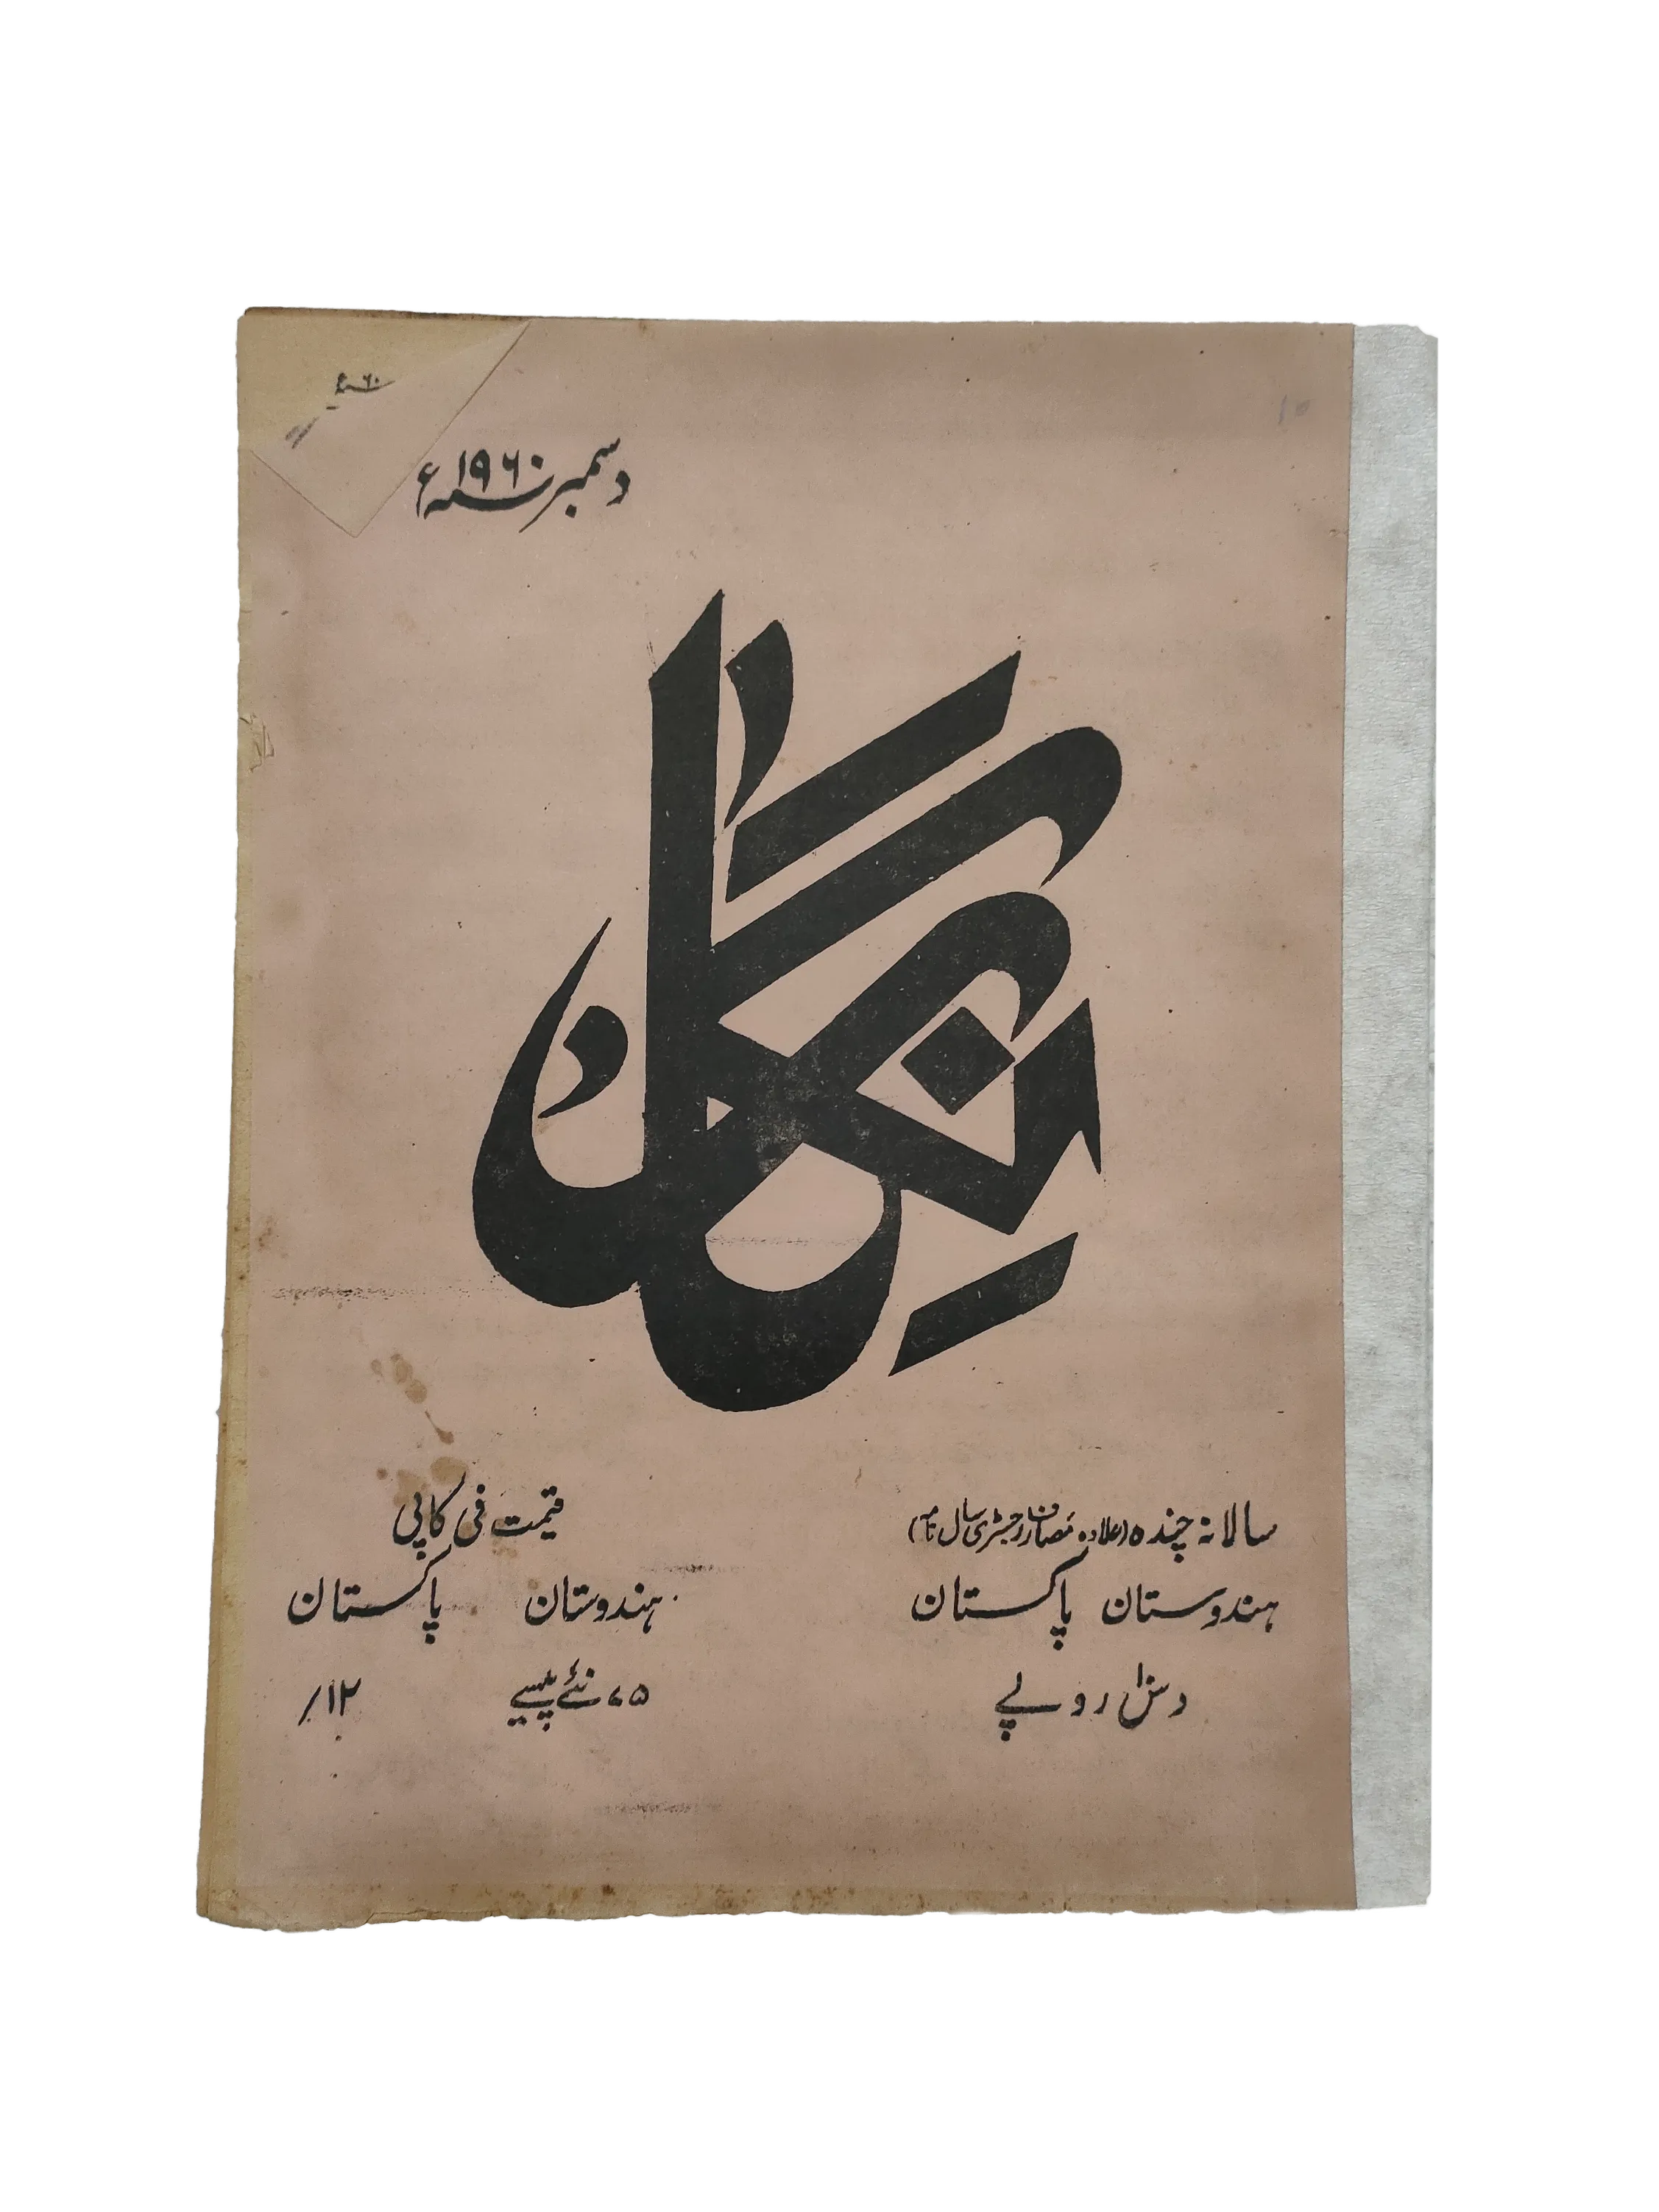 دسمبر ۱۹۶۰ء
نگار
سالانہ چندہ (علاوہ مصارف رجسٹری سال نامہ)
ہندوستان پاکستان
دس روپے
قیمت فی کاپی
ہندوستان پاکستان
۷۵ نئے پیسے ۱۲/